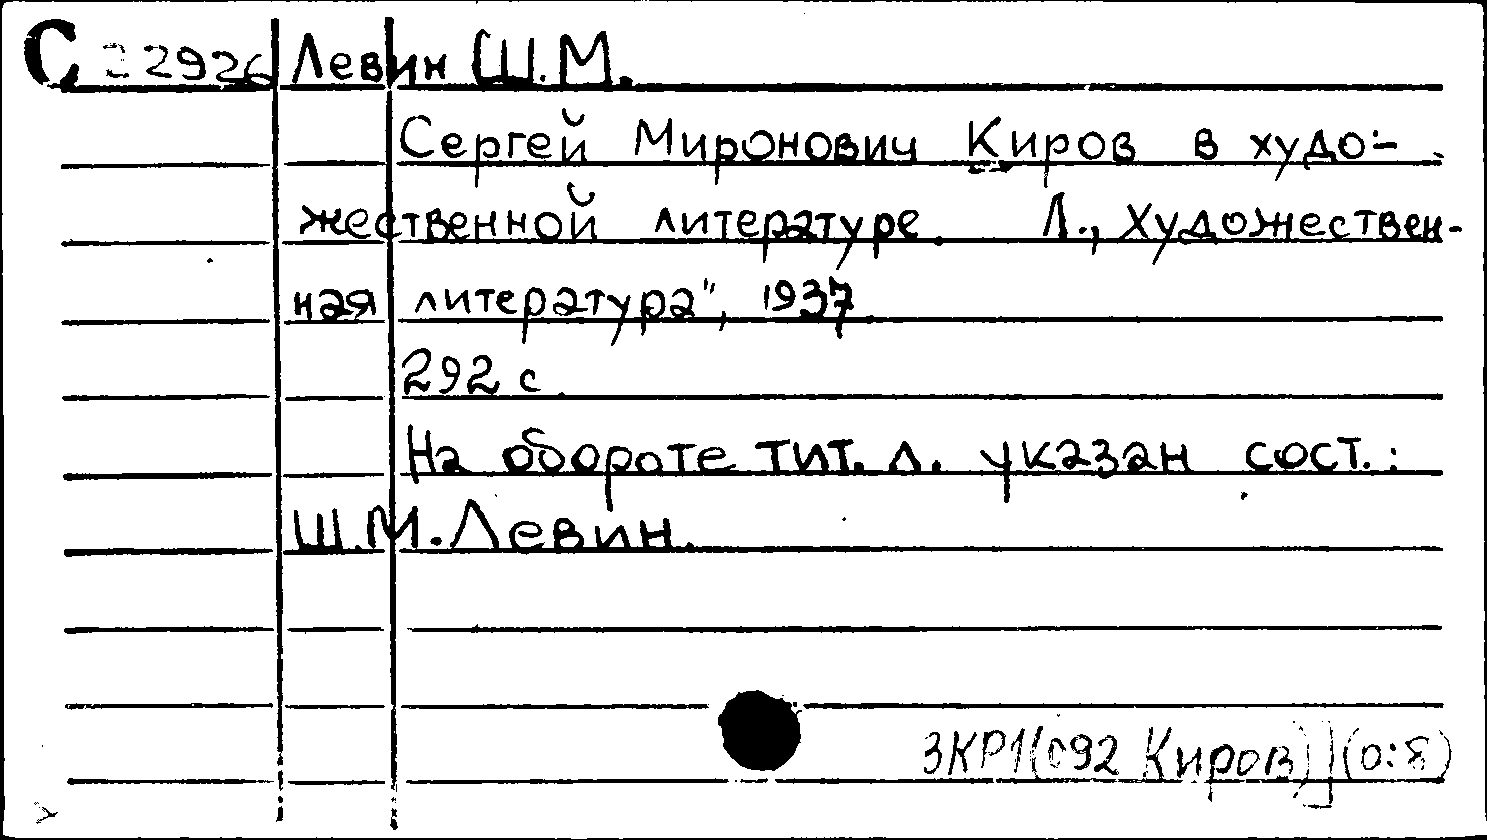 С 22926 Левин Ш.М.
Сергей Миронович Киров в худо-
жественной литературе. Л., Художествен-
ная литература", 1937.
292 с.
На обороте тит. л. указан сост.:
Ш.М. Левин.
3КР1(092 Киров)](0:8)